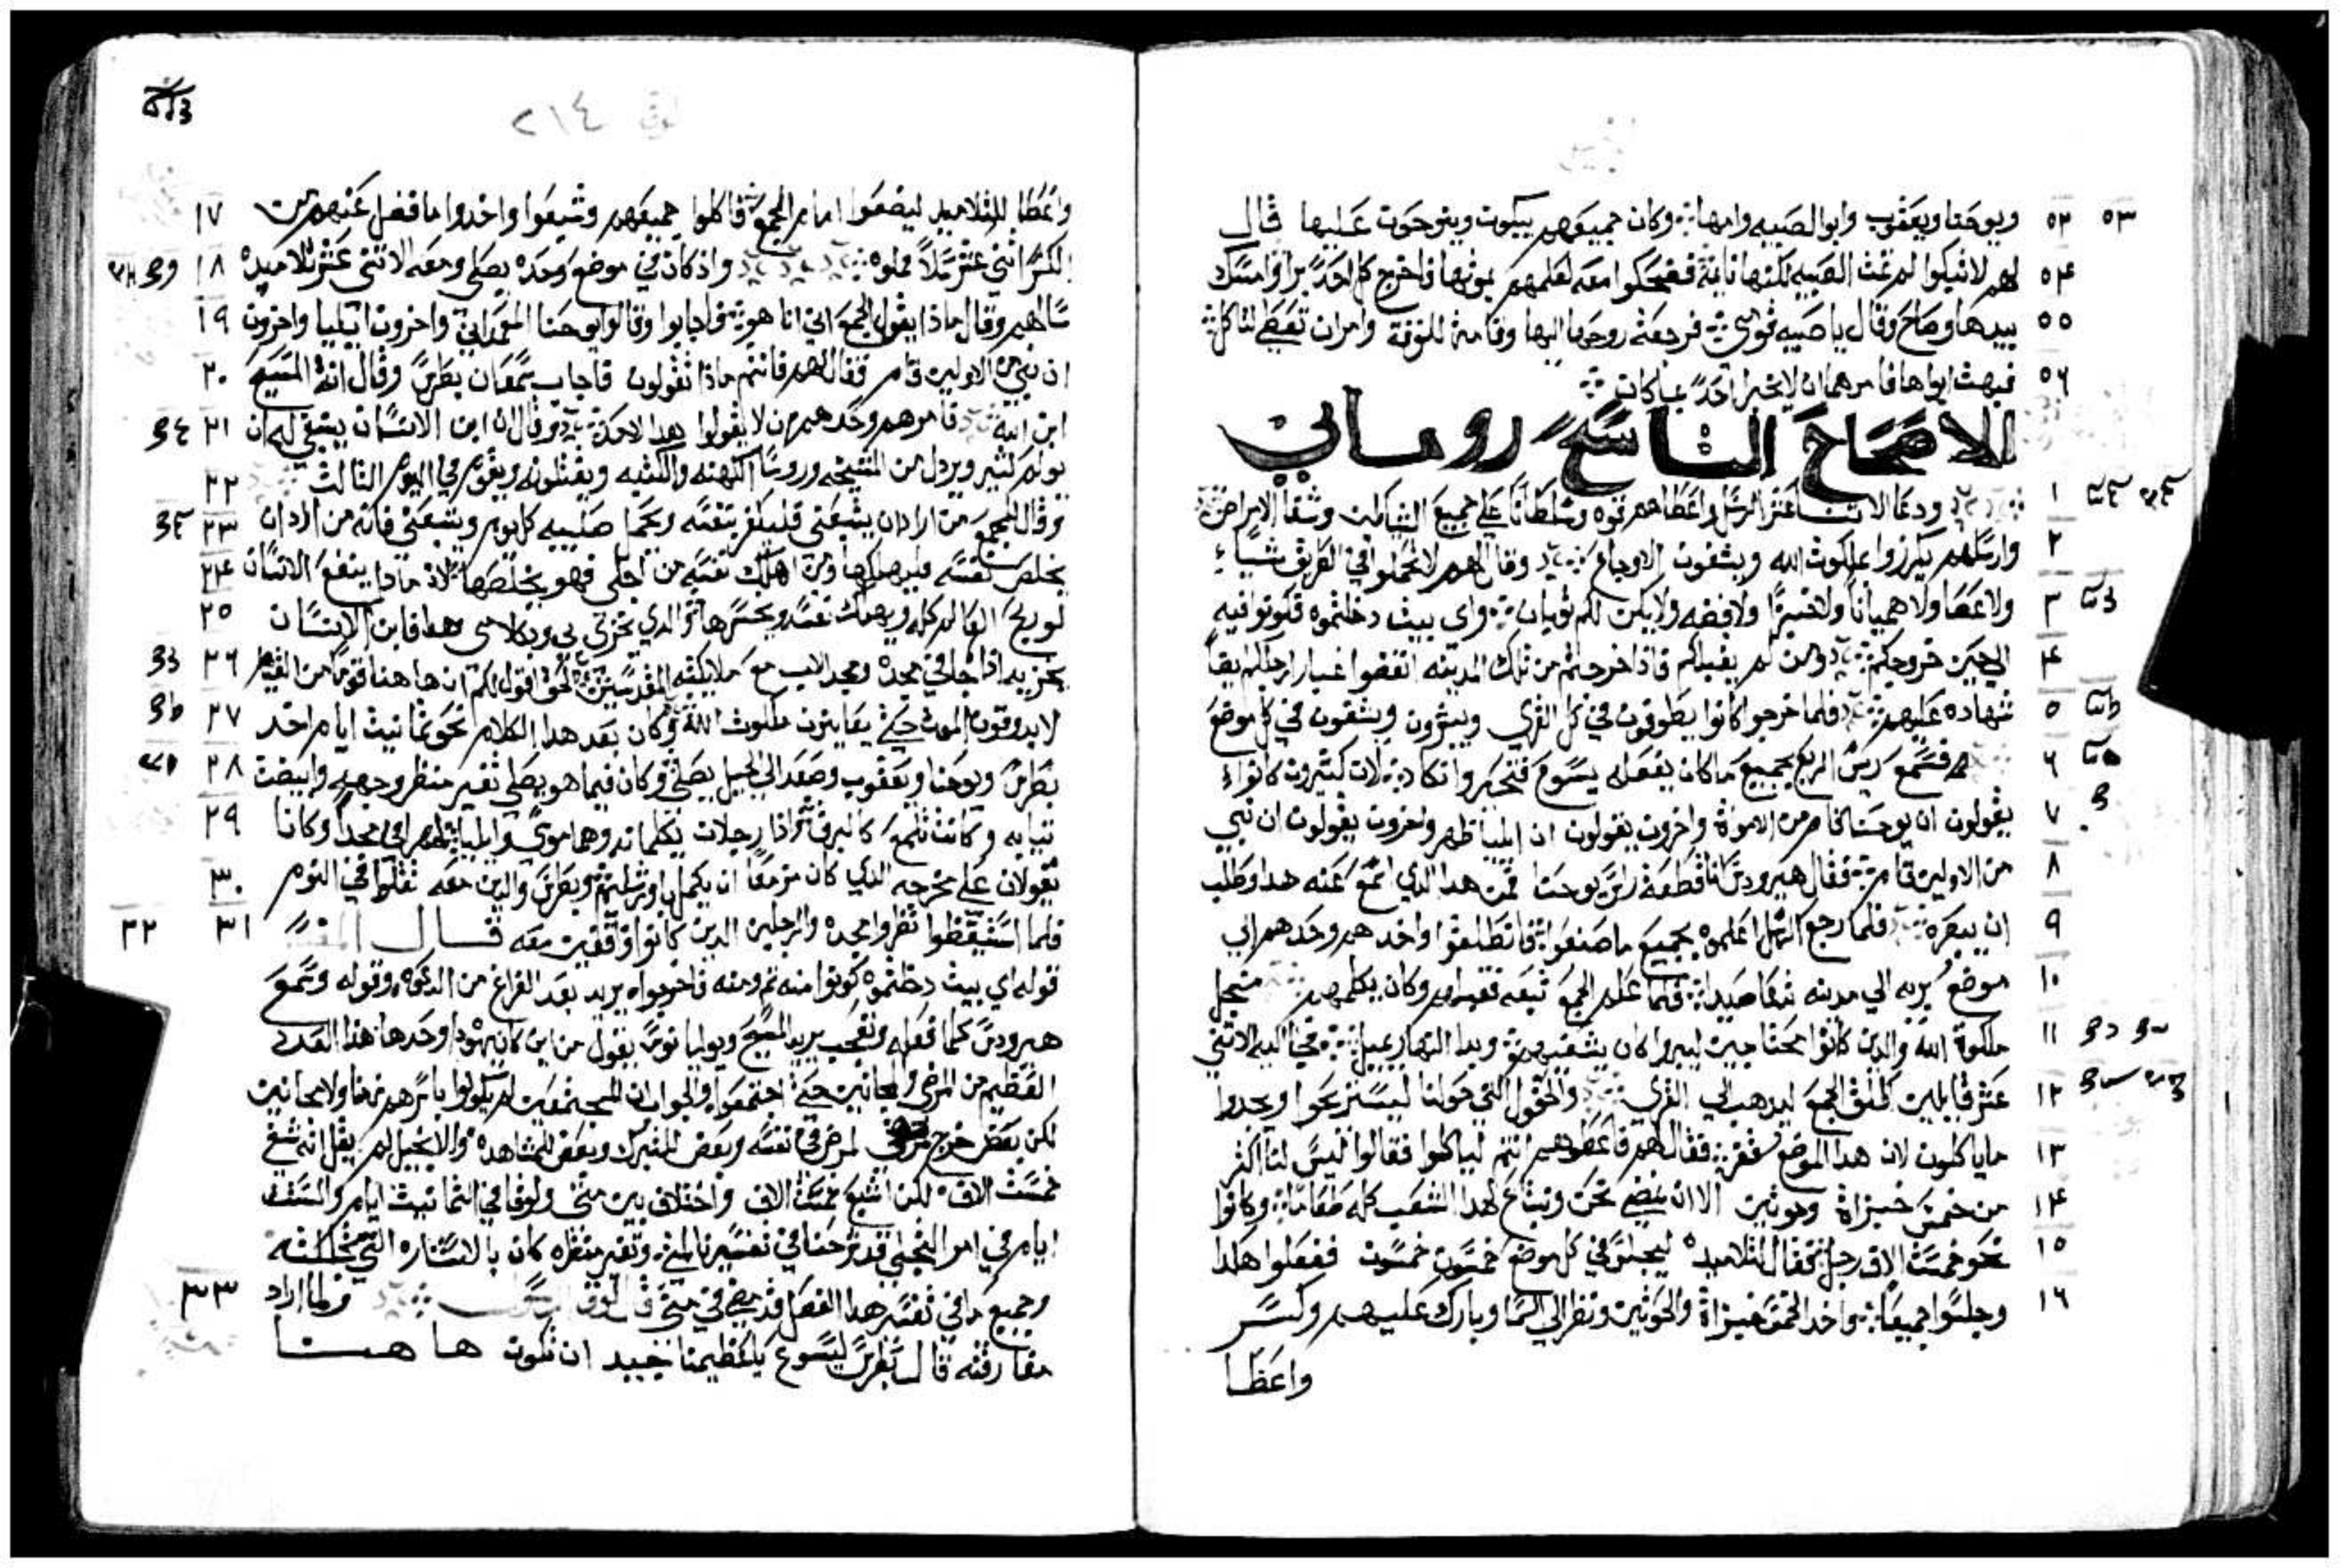 ٥٢ ٥٣ ويوحنا ويعقوب وابو الصبيه وامها وكان جميعهم يبكون وينوحون عليها قال
٥٤ لهم لا تبكوا لم تمت الصبيه لكنها نايمة فضحكوا منه لعلمهم بموتها فاخرج كل احد برا وامسك
٥٥ بيدها وصاح وقال يا صبيه قومى فرجعة روحها اليها وقامة للوقة وامران تعطى لتاكل
٥٦ فبهت ابواها فامرهما ان لا يخبرا احد بما كان
الاصحاح التاسع روماني
١ ودعا الاتنا عشر الرسل واعطاهم قوه وسلطانا على جميع الشياطين وشفا الامراض
٢ وارسلهم يكرزوا بملكوت الله ويشفون الاوجاع وقال لهم لا تحملوا في الطريق شياء
٣ ولا عصا ولا هميانا ولا خبزا ولا فضه ولا يكن لكم توبان واي بيت دخلتموه فكونوا فيه
٤ الي حين خروجكم ومن لم يقبلكم فاذا خرجتم من تلك المدينه انفضوا غبار ارجلكم
٥ شهاده عليهم فلما خرجوا كانوا يطوفون في كل القري ويبشرون ويشفون في كل موضع
٦ فسمع ريس الربع بجميع ما كان يفعله يسوع فتحير وانكاد لان كثيرون كانوا
٧ يقولون ان يوحنا قام من الاموات واخرون يقولون ان ايليا ظهر واخرون يقولون ان نبي
٨ من الاولين قام فقال هيرودس انا قطعة راس يوحنا فمن هدا الدي اسمع عنه هدا وطلب
٩ ان يبصره فلما رجع الرسل اعلموه بجميع ما صنعوا فانطلقوا واخدهم وحدهم الي
١٠ موضع بريه الي مدينه تدعا صيدا فلما علم الجمع تبعه فقبلهم وكان يكلمهم من اجل
١١ ملكوة الله والدين كانوا محتاجين ليبروا كان يشفيهم وبدا النهار يميل فجا اليه الاتني
١٢ عشر قايلين اطلق الجمع ليدهب الي القري والحقول التي حولنا ليستريحوا ويجدوا
١٣ ما ياكلون لان هدا الموضع قفر فقال لهم فاعطوهم انتم لياكلوا فقالوا ليس لنا اكثر
١٤ من خمس خبزاة وحوتين الا ان نمضي نحن ونبتاع لهدا الشعب كله طعاما وكانوا
١٥ نحو خمست الاف رجل فقال لتلاميده ليجلسو في كل موضع خمسون خمسون ففعلوا هكدا
١٦ وجلسوا جميعا واخد الخمس خبزاة والحوتين ونظر الي السما وبارك عليهم وكسر
واعطا
لوقا ٢١٤
١٧ واعطا للتلاميد ليضعوا امام الجمع فاكلوا جميعهم وشبعوا واخدوا ما فضل عنهم من
١٨ الكسر اثني عشر سلا مملوه واذ كان في موضع وحده يصلي ومعه الاثني عشر تلاميده
١٩ سالهم وقال ماذا يقول الجمع اني انا هو فاجابوا وقالوا يوحنا المعمداني واخرون ايليا واخرون
٢٠ ان نبي من الاولين قام فقال لهم فانتم ماذا تقولون فاجاب سمعان بطرس وقال انة المسيح
٢١ ابن الله فامرهم وحدهم ان لا يقولوا هدا لاحد وقال ان ابن الانسان ينبغي له ان
٢٢ يولم كثير ويردل من المشيخه وروسا الكهنه والكتبه ويقتلونه ويقوم في اليوم الثالث
٢٣ وقال للجمع من اراد ان يتبعني فليكفر بنفسه ويحمل صليبه كل يوم ويتبعني فانه من اراد ان
٢٤ يخلص نفسه فليهلكها ومن اهلك نفسه من اجلي فهو يخلصها لانه مادا ينفع الانسان
٢٥ لو ربح العالم كله ويهلك نفسه ويخسرها والدي يخزي بي وبكلامي فابن الانسان
٢٦ يخزيه اذا جا في مجده ومجد الاب مع ملايكته المقدسين الحق اقول لكم ان ها هنا قوما من القيام
٢٧ لا يدوقون الموت حتي يعاينون ملكوت الله وكان بعد هدا الكلام نحو تمانيت ايام اخد
٢٨ بطرس ويوحنا ويعقوب وصعد الي الجبل يصلي وكان فيما هو يصلي تغير منظر وجهه وابيضت
٢٩ تيابه وكانت تلمع كالبرق واذا رجلان يكلمانه وهما موسي وايليا ظهرا في مجد وكانا
٣٠ يقولان علي مخرجه الدي كان مزمعا ان يكمل باورشليم وبطرس والدين معه تقلوا في النوم
٣١ ٣٢ فلما استيقظوا نظروا مجده والرجلين الدين كانوا واقفين معه قال المفسر
قوله اي بيت دخلتموه كونوا منه تم ومنه فاخرجوا يريد بعد الفراغ من الدعوه وقوله وسمع
هيرودس كلما فعله وتعجب يريد المسيح ويوليانوس يقول من اين كان يهودا وحدها هذا العدد
العظيم من المرضي والمجانين حتي اجتمعوا والجواب ان المجتمعين لم يكونوا باسرهم زمنا ولا مجانين
لكن بعض خرج لمرض في نفسه وبعض للتبرك وبعض للمشاهده والانجيل لم يقل انه شفي
خمست الاف لكن اشبع خمست الاف واختلاف بين متي ولوقا في التمانيت ايام والست
ايام في امر التجلي قد شرحنا في تفسيرنا لمتي وتغير منظره كان بالاستناره التي
وجميع ما في تفسير هدا الفصل قد مضي في متي قال لوقا
٣٣ ولما اراد
مفارقته قال بطرس ليسوع يا عظيمنا جيد ان نكون هاهنا